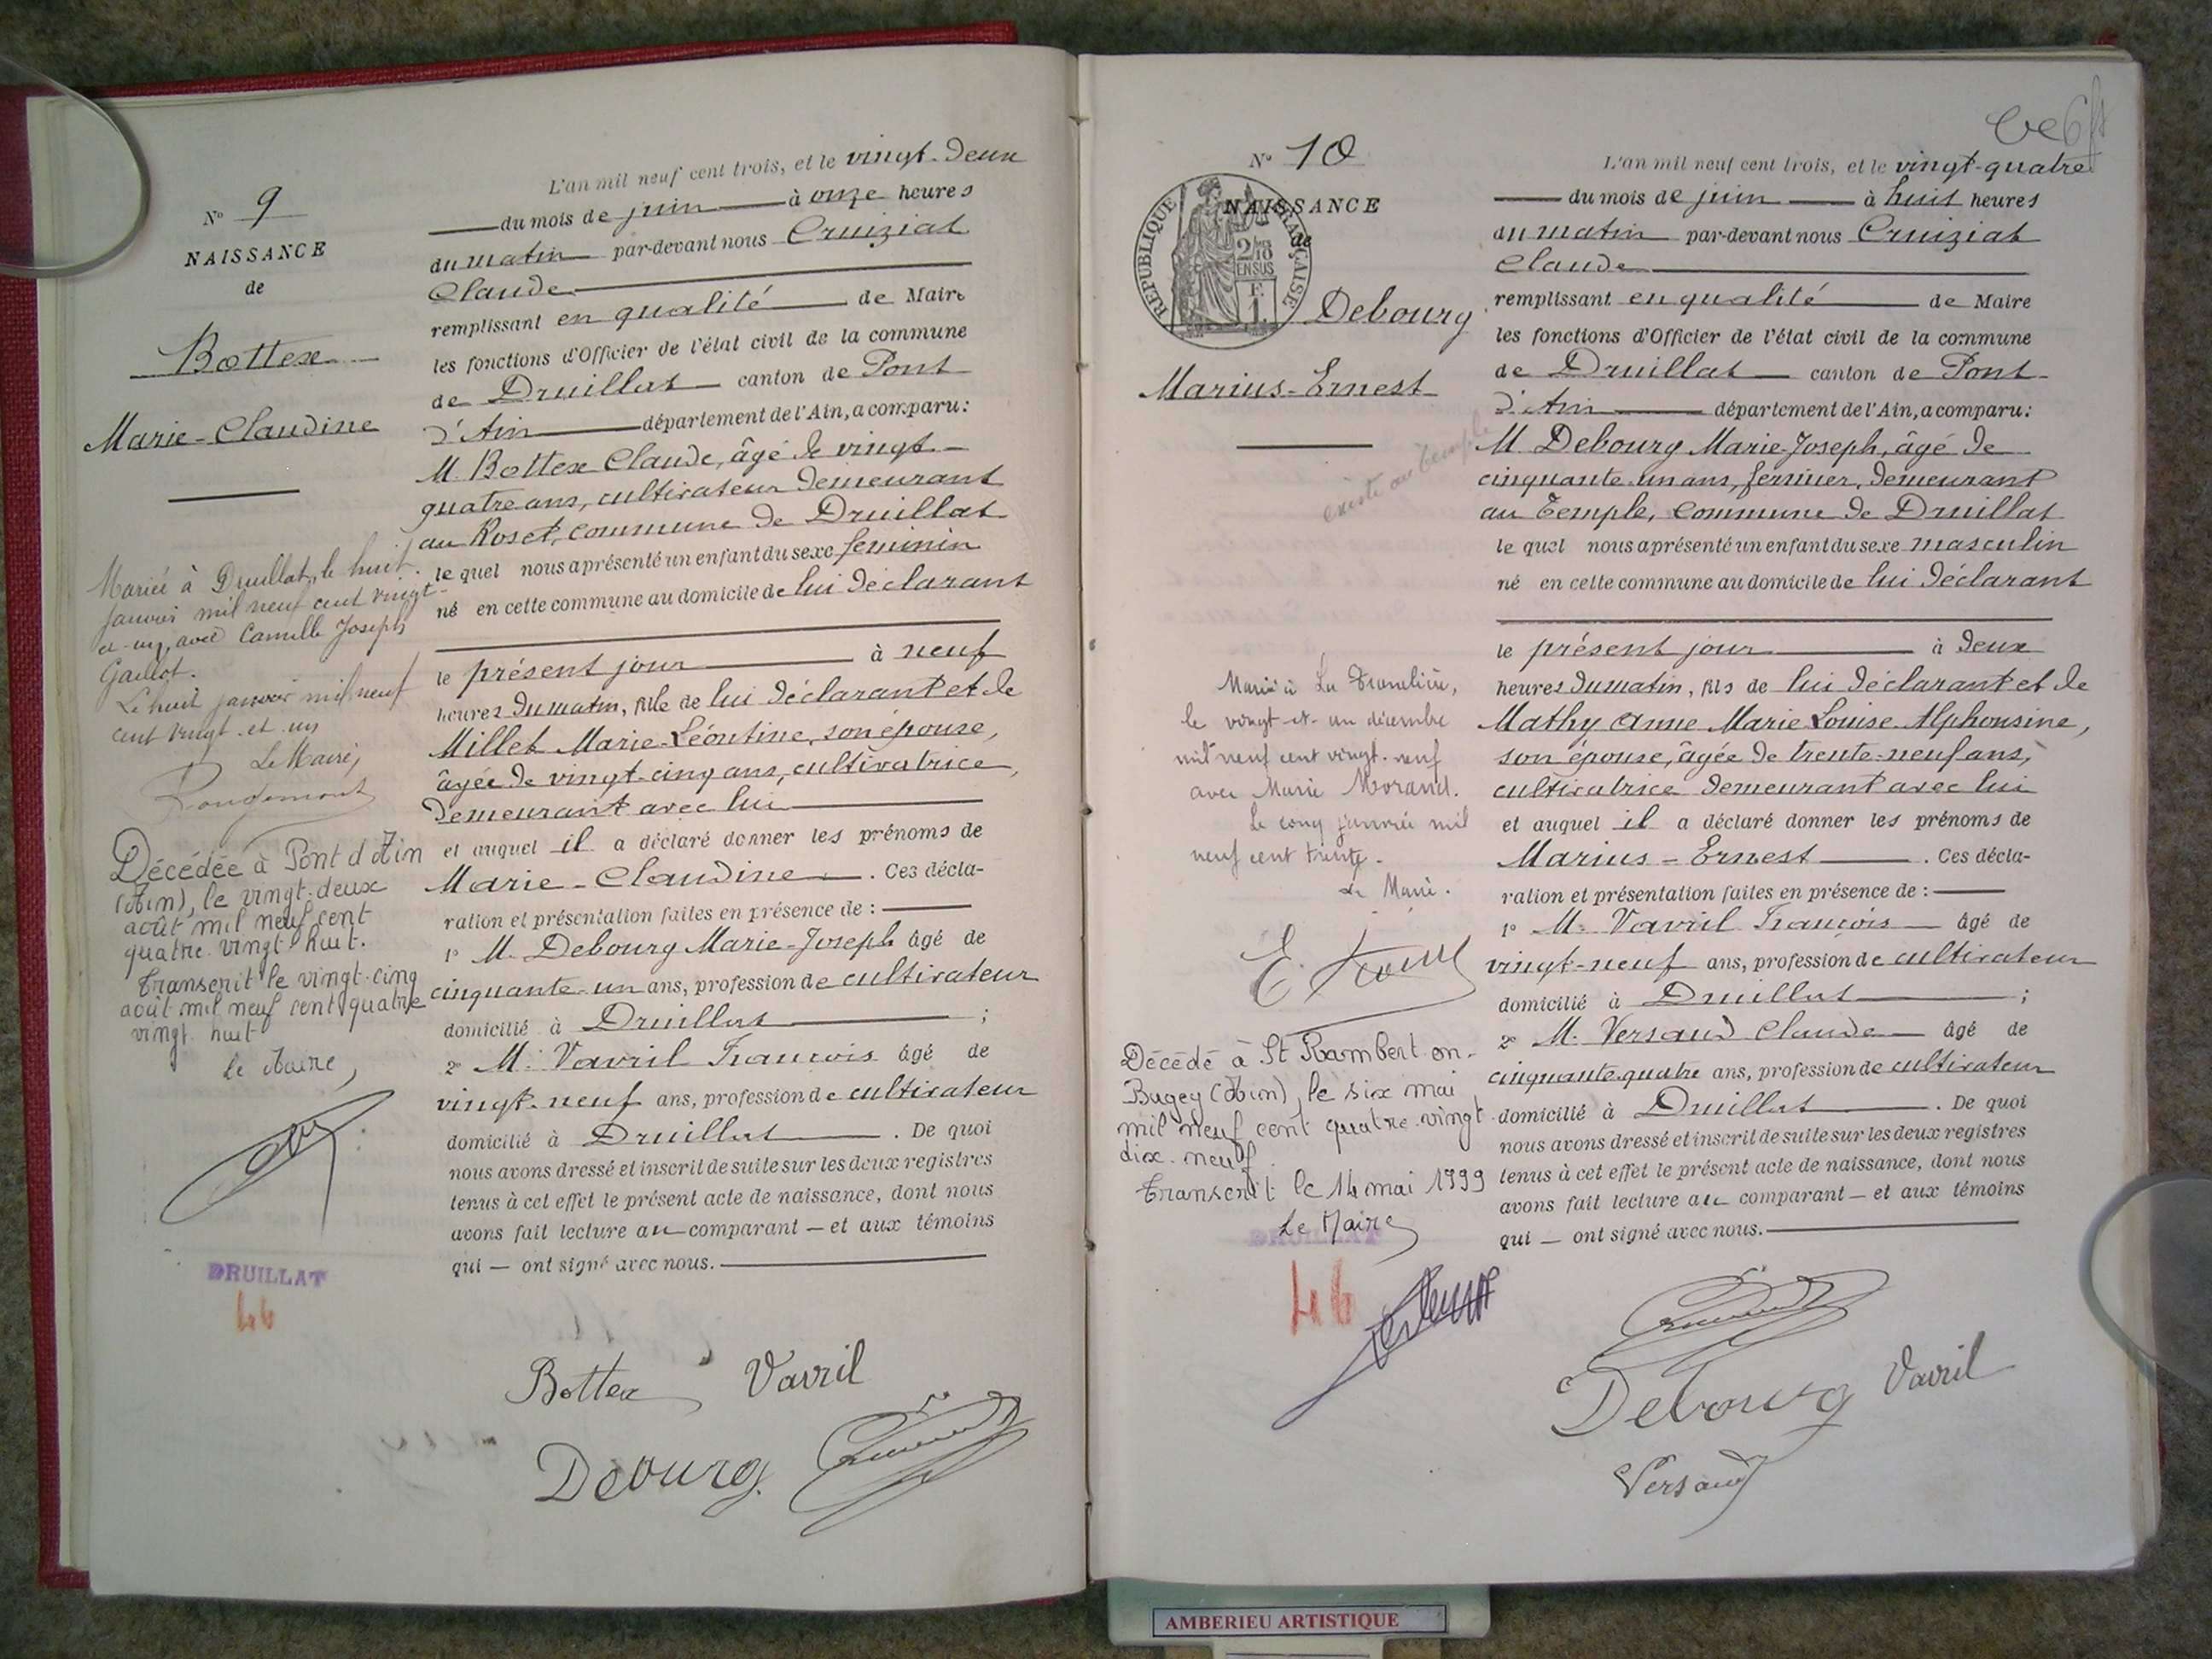 N° 9
NAISSANCE
de
Bottex
Marie-Claudine
Mariée à Druillat, le huit
janvier mil neuf cent vingt-
et-un, avec Camille Joseph
Gaillot.
Le huit janvier mil neuf
cent vingt-et-un
Le Maire,
Décédée à Pont d'Ain
(Ain), le vingt-deux
août mil neuf cent
quatre-vingt huit.
Transcrit le vingt-cinq
août mil neuf cent quatre
vingt huit
le Maire,
DRUILLAT
46
L'an mil neuf cent trois, et le vingt-deux
du mois de juin à onze heures
du matin par-devant nous Cruiziat
Claude
remplissant en qualité de Maire
les fonctions d'Officier de l'état civil de la commune
de Druillat canton de Pont
d'Ain département de l'Ain, a comparu:
M. Bottex Claude, âgé de vingt-
quatre ans, cultivateur demeurant
au Roset, commune de Druillat
le quel nous a présenté un enfant du sexe féminin
né en cette commune au domicile de lui déclarant
le présent jour à neuf
heures du matin, fille de lui déclarant et de
Millet Marie-Léontine, son épouse,
âgée de vingt-cinq ans, cultivatrice,
demeurant avec lui
et auquel il a déclaré donner les prénoms de
Marie-Claudine. Ces décla-
ration et présentation faites en présence de :
1° M. Debourg Marie-Joseph âgé de
cinquante-un ans, profession de cultivateur
domicilié à Druillat ;
2° M. Vavril François âgé de
vingt-neuf ans, profession de cultivateur
domicilié à Druillat. De quoi
nous avons dressé et inscrit de suite sur les deux registres
tenus à cet effet le présent acte de naissance, dont nous
avons fait lecture au comparant — et aux témoins
qui — ont signé avec nous.
Bottex Vavril
Debourg
N° 10
NAISSANCE
de
REPUBLIQUE FRANÇAISE
2/10 EN SUS
F. 1
Debourg
Marius-Ernest
Marié à La Tranclière,
le vingt-et-un décembre
mil neuf cent vingt-neuf
avec Marie Morand.
Le cinq janvier mil
neuf cent trente.
Le Maire.
Décédé à St Rambert-en-
Bugey (Ain), le six mai
mil neuf cent quatre-vingt
dix-neuf
Transcrit le 14 mai 1999
Le Maire
DRUILLAT
46
L'an mil neuf cent trois, et le vingt-quatre
du mois de juin à huit heures
du matin par-devant nous Cruiziat
Claude
remplissant en qualité de Maire
les fonctions d'Officier de l'état civil de la commune
de Druillat canton de Pont-
d'Ain département de l'Ain, a comparu:
M. Debourg Marie-Joseph, âgé de
cinquante-un ans, fermier, demeurant
au Temple, commune de Druillat
le quel nous a présenté un enfant du sexe masculin
né en cette commune au domicile de lui déclarant
le présent jour à deux
heures du matin, fils de lui déclarant et de
Mathy Anne Marie Louise Alphonsine,
son épouse, âgée de trente-neuf ans,
cultivatrice demeurant avec lui
et auquel il a déclaré donner les prénoms de
Marius-Ernest. Ces décla-
ration et présentation faites en présence de :
1° M. Vavril François âgé de
vingt-neuf ans, profession de cultivateur
domicilié à Druillat ;
2° M. Versaud Claude âgé de
cinquante-quatre ans, profession de cultivateur
domicilié à Druillat. De quoi
nous avons dressé et inscrit de suite sur les deux registres
tenus à cet effet le présent acte de naissance, dont nous
avons fait lecture au comparant — et aux témoins
qui — ont signé avec nous.
Debourg Vavril
Versaud
AMBERIEU ARTISTIQUE